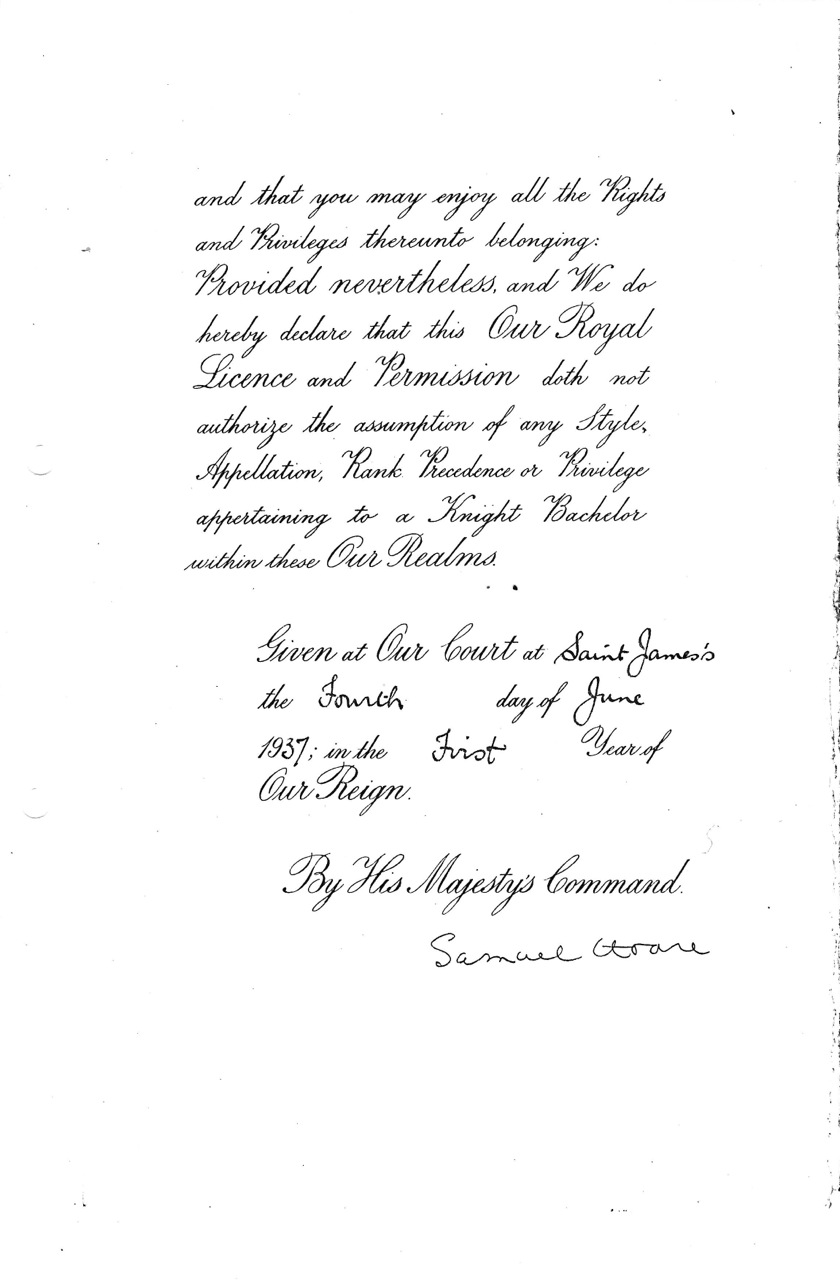 and that you may enjoy all the Rights
and Privileges thereunto belonging:
Provided nevertheless, and We do
hereby declare that this Our Royal
Licence and Permission doth not
authorize the assumption of any Style,
Appellation, Rank Precedence or Privilege
appertaining to a Knight Bachelor
within these Our Realms.
Given at Our Court at Saint James's
the Fourth day of June
1937; in the First Year of
Our Reign.
By His Majesty's Command.
Samuel Hoare